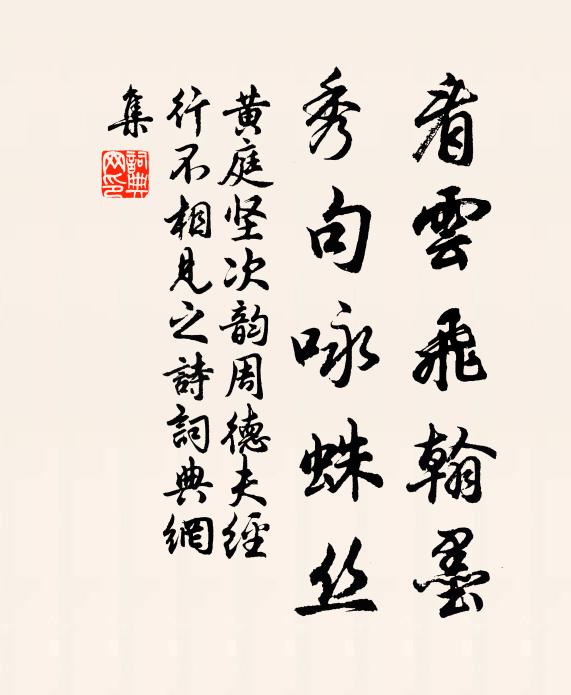 看雲飛翰墨
秀句咏蛛丝
黄庭坚次韵周德夫經
行不相見之詩詞典網
集
詞典
网印